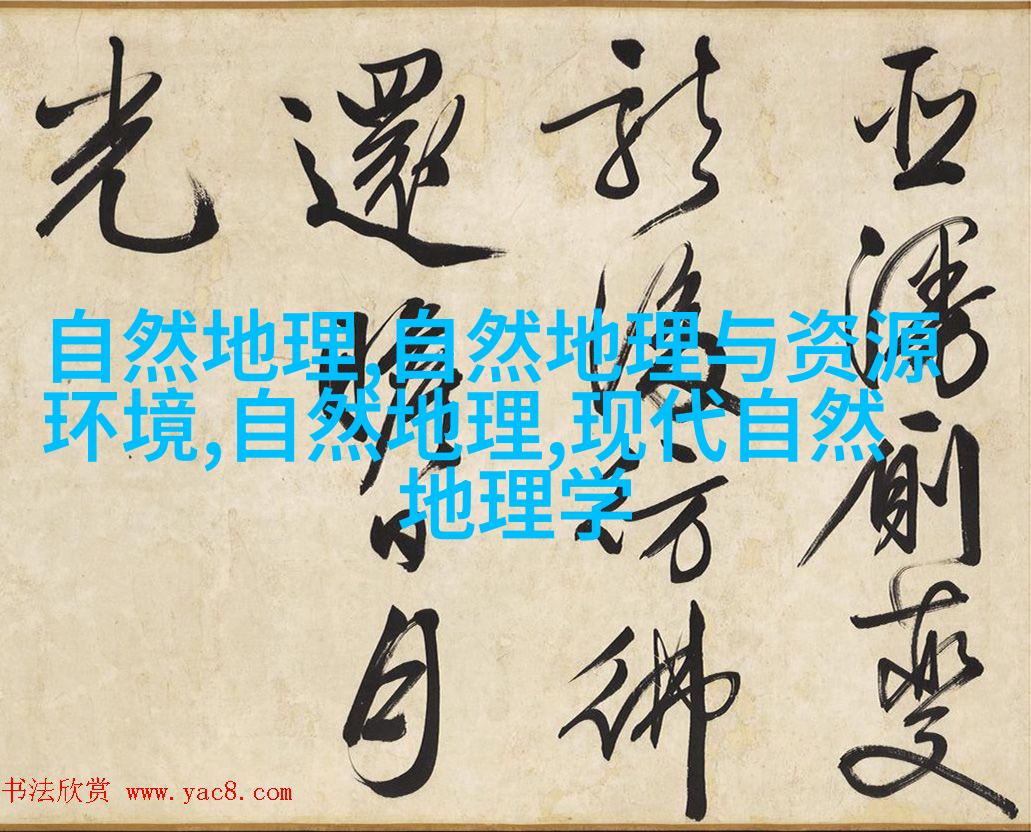 廁變
彿
還日月
光
自然地理,自然地理与资源
环境,自然地理,现代自然
地理学
书法欣赏 www.yac8.com